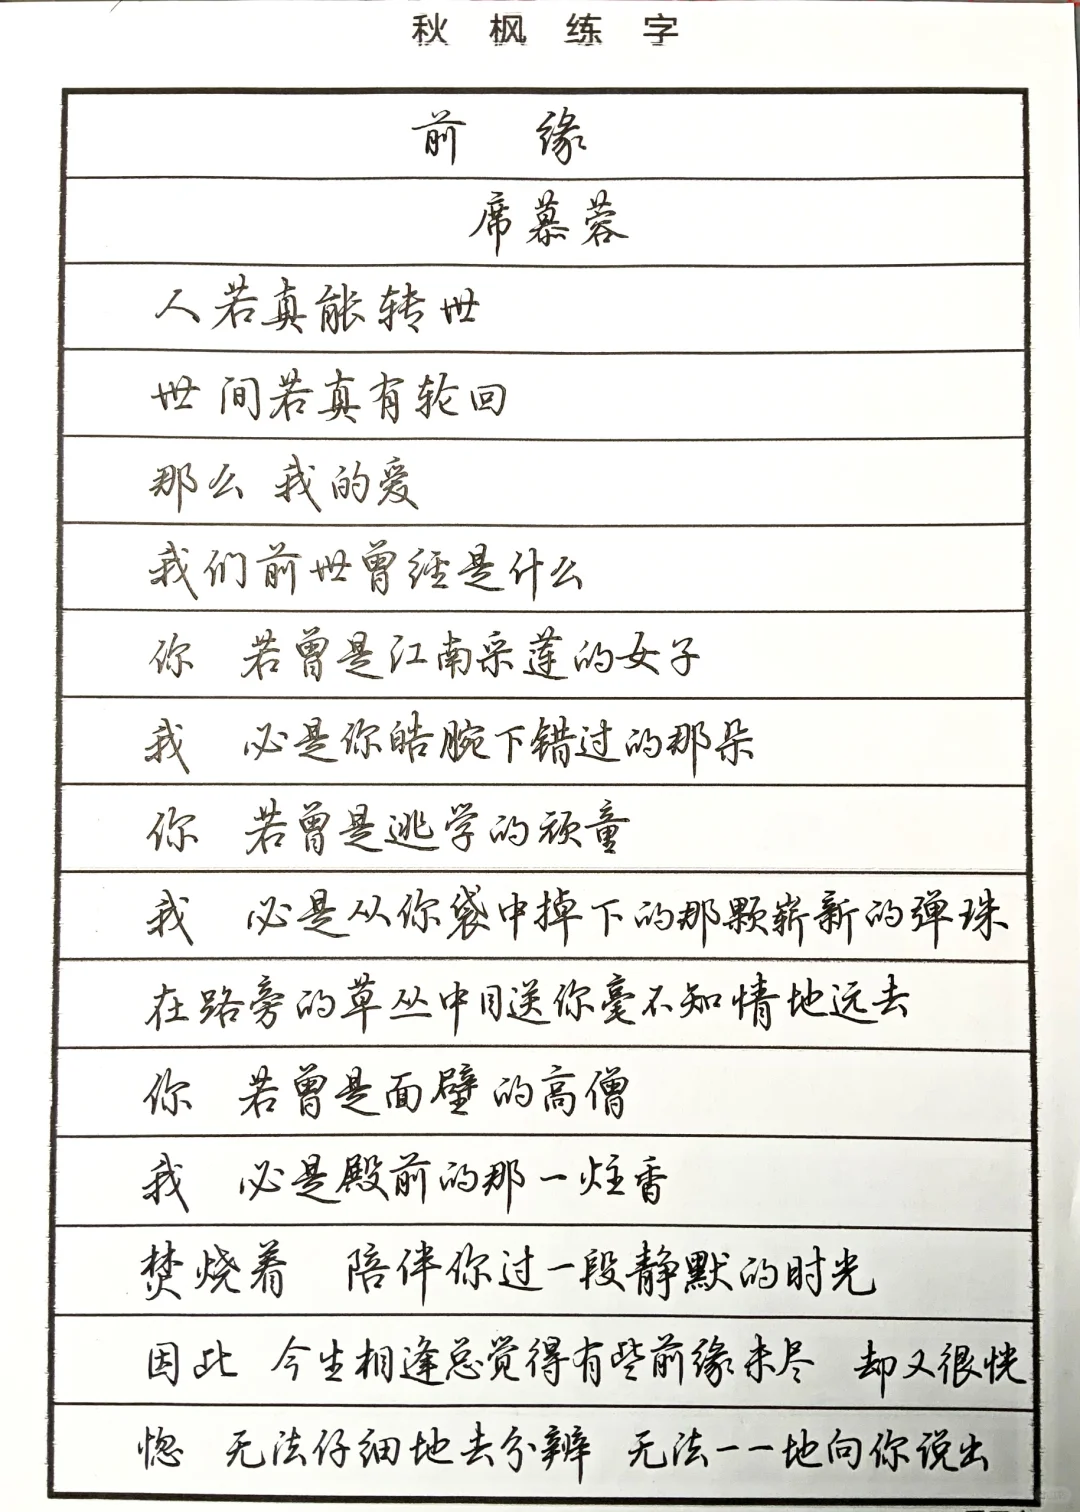 秋枫练字
前 缘
席慕蓉
人若真能转世
世间若真有轮回
那么 我的爱
我们前世曾经是什么
你 若曾是江南采莲的女子
我 必是你皓腕下错过的那朵
你 若曾是逃学的顽童
我 必是从你袋中掉下的那颗崭新的弹珠
在路旁的草丛中目送你毫不知情地远去
你 若曾是面壁的高僧
我 必是殿前的那一炷香
焚烧着 陪伴你过一段静默的时光
因此 今生相逢总觉得有些前缘未尽 却又很恍
惚 无法仔细地去分辨 无法一一地向你说出